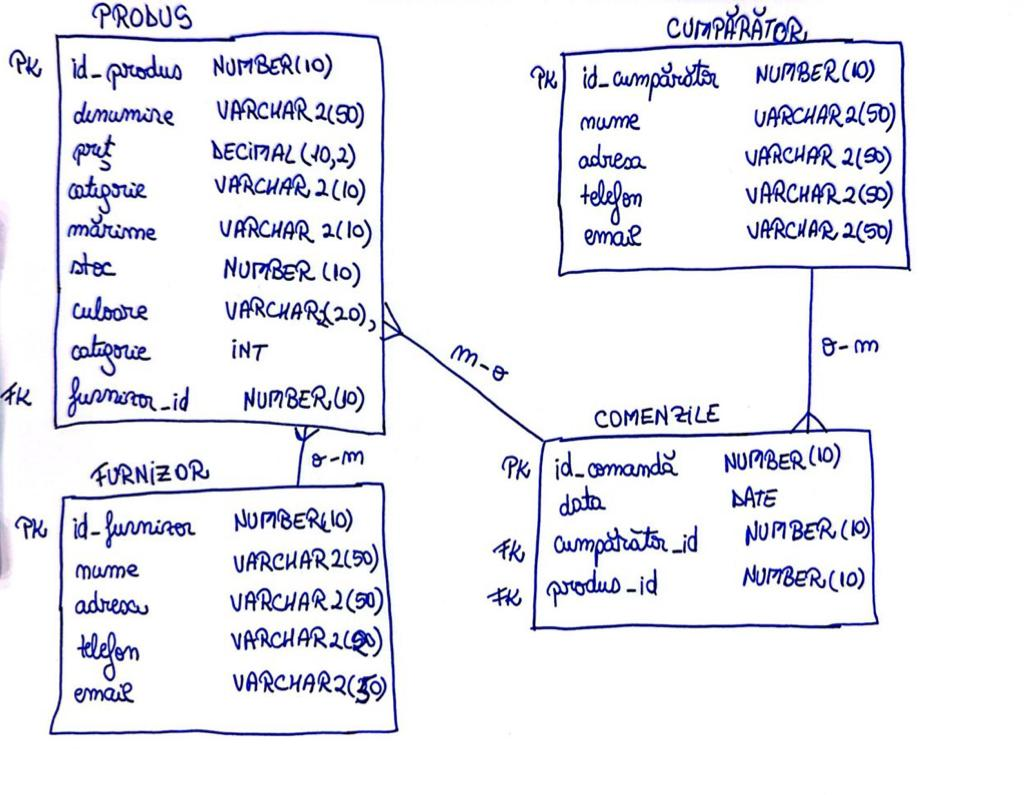 PRODUS
PK id_produs NUMBER(10)
denumire VARCHAR2(50)
preț DECIMAL(10,2)
categorie VARCHAR2(10)
mărime VARCHAR2(10)
stoc NUMBER(10)
culoare VARCHAR2(20),
categorie INT
FK furnizor_id NUMBER(10)
CUMPĂRĂTOR
PK id_cumpărător NUMBER(10)
nume VARCHAR2(50)
adresa VARCHAR2(50)
telefon VARCHAR2(50)
email VARCHAR2(50)
m-o
o-m
o-m
FURNIZOR
PK id_furnizor NUMBER(10)
nume VARCHAR2(50)
adresa VARCHAR2(50)
telefon
email
COMENZILE
PK id_comandă NUMBER(10)
data DATE
FK cumpărător_id NUMBER(10)
FK produs_id NUMBER(10)